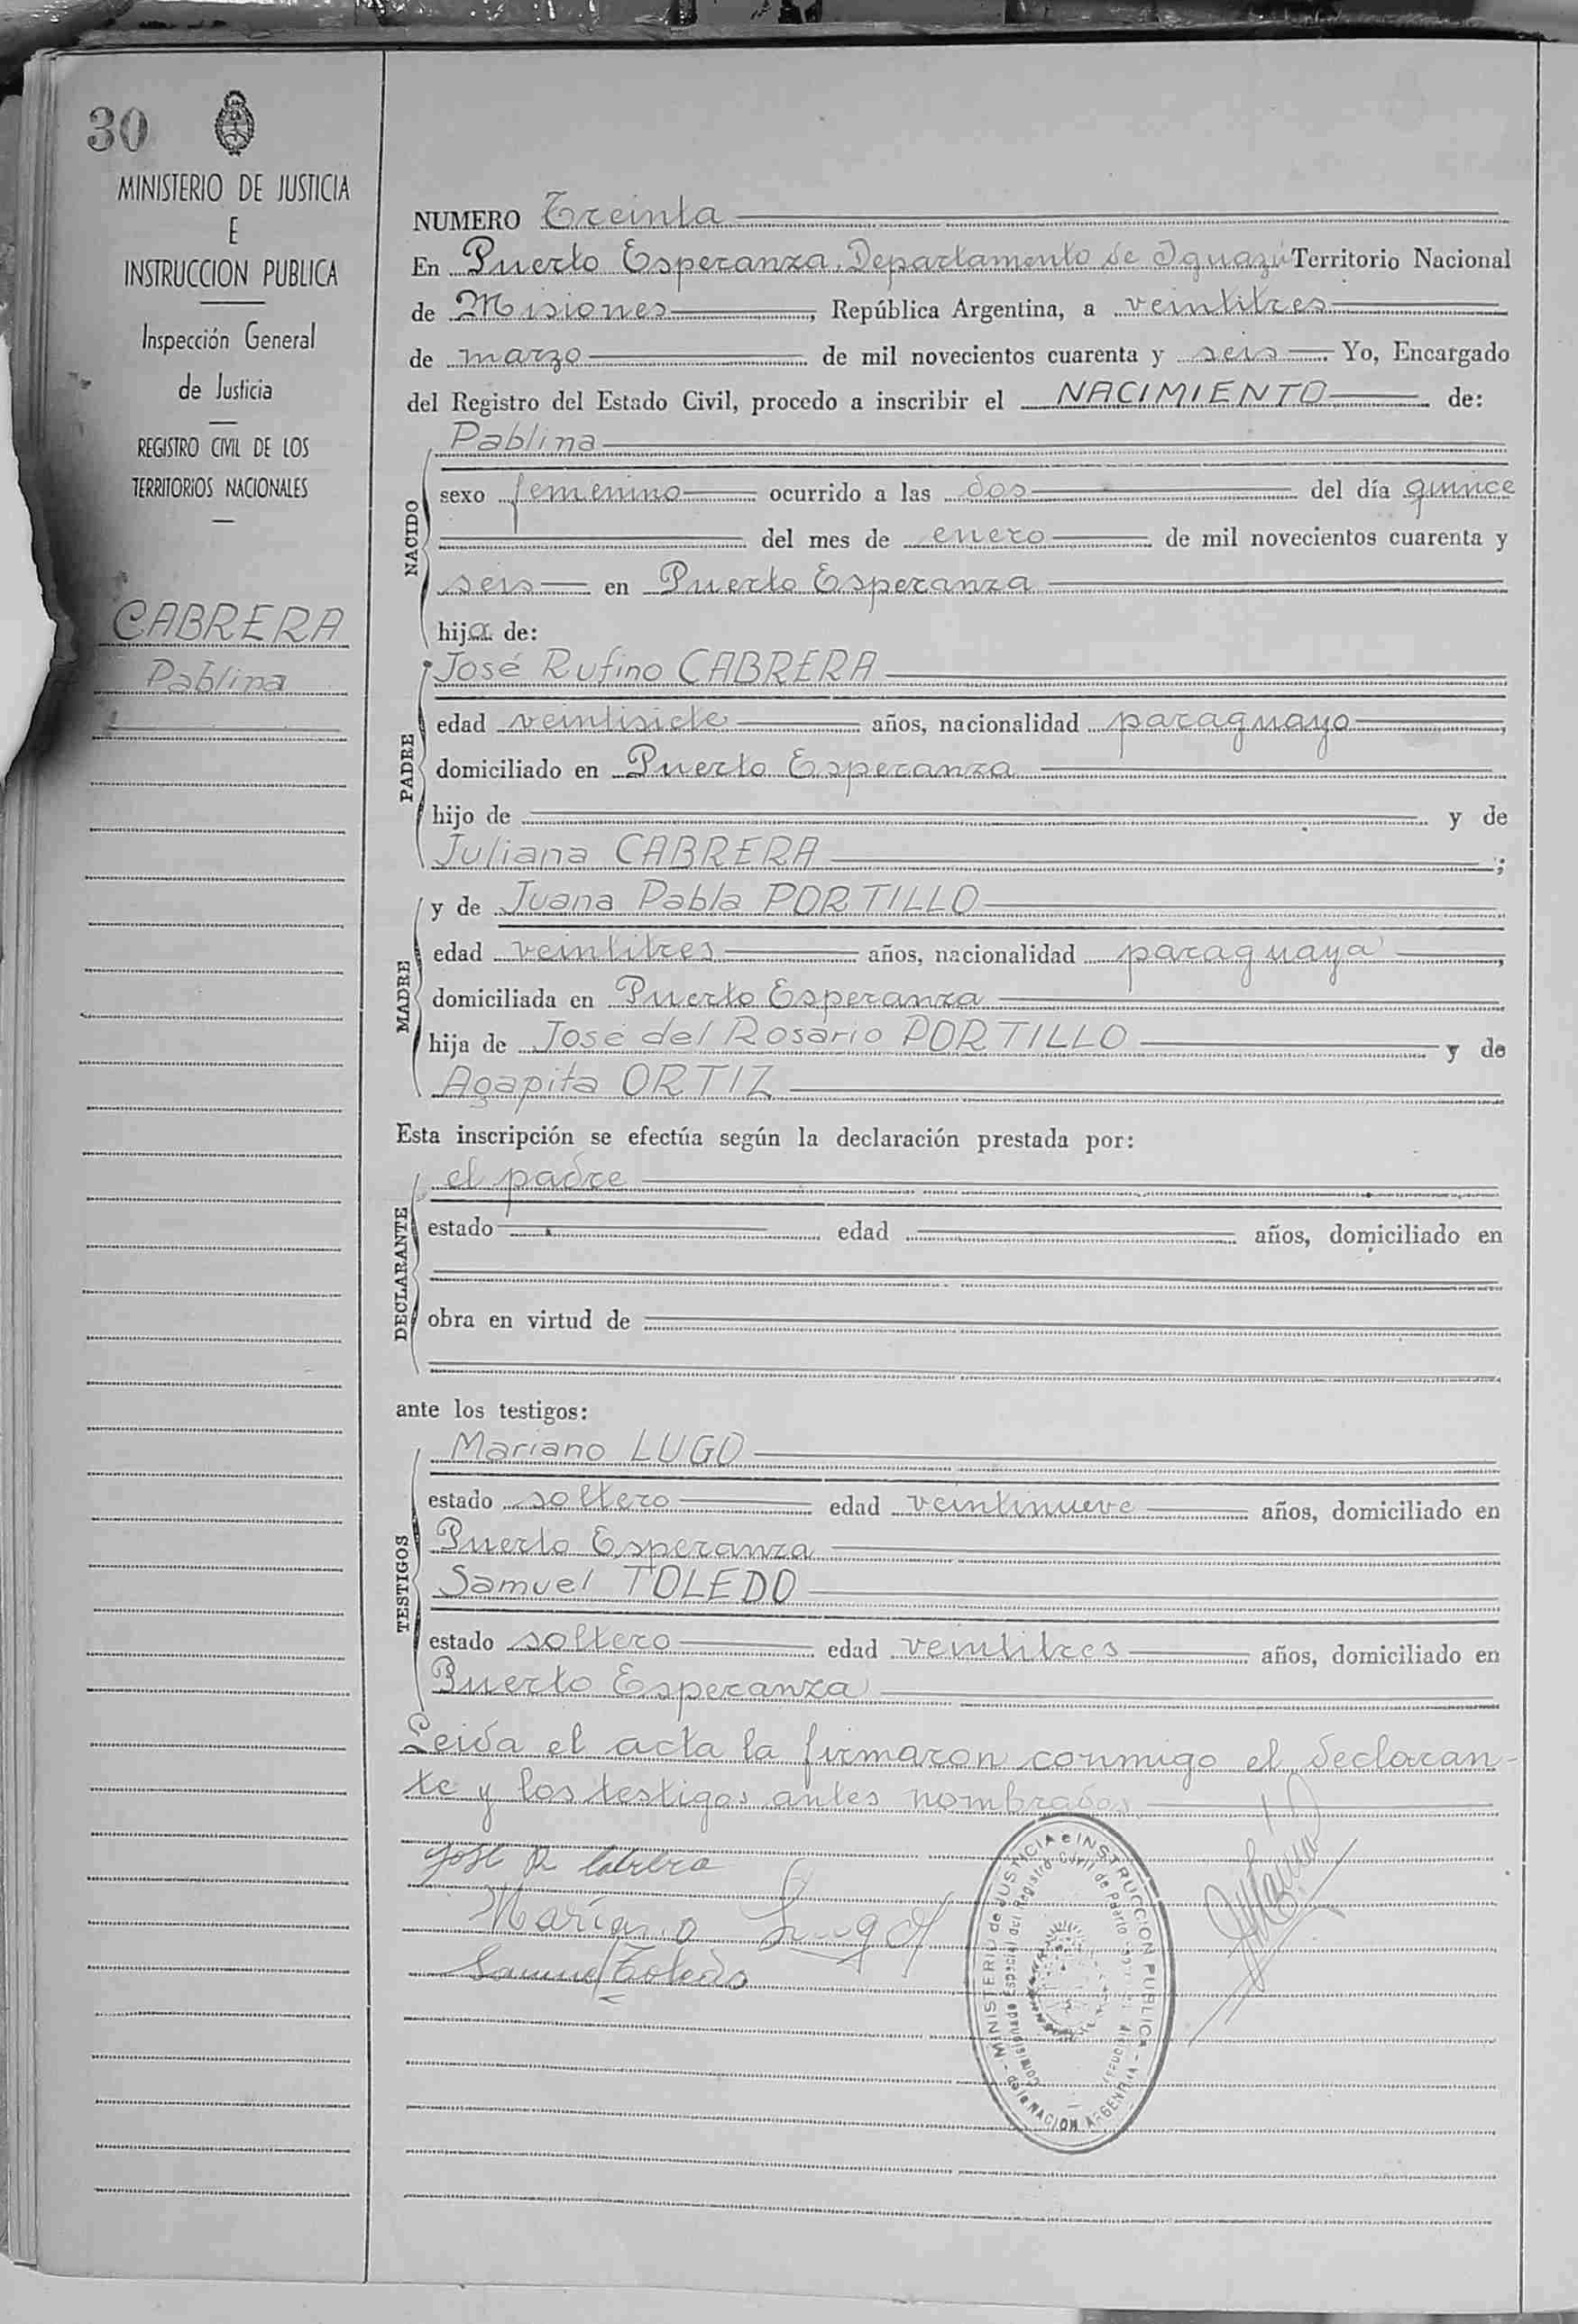 30
MINISTERIO DE JUSTICIA
E
INSTRUCCION PUBLICA
Inspección General
de Justicia
REGISTRO CIVIL DE LOS
TERRITORIOS NACIONALES
CABRERA
Pablina
NUMERO Treinta
En Puerto Esperanza, Departamento de Iguazú Territorio Nacional
de Misiones, República Argentina, a veintitres
de marzo de mil novecientos cuarenta y seis. Yo, Encargado
del Registro del Estado Civil, procedo a inscribir el NACIMIENTO de:
NACIDO
Pablina
sexo femenino ocurrido a las dos del día quince
del mes de enero de mil novecientos cuarenta y
seis en Puerto Esperanza
hija de:
PADRE
José Rufino CABRERA
edad veintisiete años, nacionalidad paraguayo,
domiciliado en Puerto Esperanza
hijo de y de
Juliana CABRERA ;
MADRE
y de Juana Pabla PORTILLO
edad veintitres años, nacionalidad paraguaya,
domiciliada en Puerto Esperanza
hija de José del Rosario PORTILLO y de
Agapita ORTIZ
Esta inscripción se efectúa según la declaración prestada por:
DECLARANTE
el padre
estado edad años, domiciliado en
obra en virtud de
ante los testigos:
TESTIGOS
Mariano LUGO
estado soltero edad veintinueve años, domiciliado en
Puerto Esperanza
Samuel TOLEDO
estado soltero edad veintitres años, domiciliado en
Puerto Esperanza
Leida el acta la firmaron conmigo el declaran-
te y los testigos antes nombrados
José R Cabrera
Mariano Lugo
Samuel Toledo
MINISTERIO de JUSTICIA e INSTRUCCION PUBLICA - de la NACION ARGENTINA
Comisionado Especial del Registro Civil de Puerto